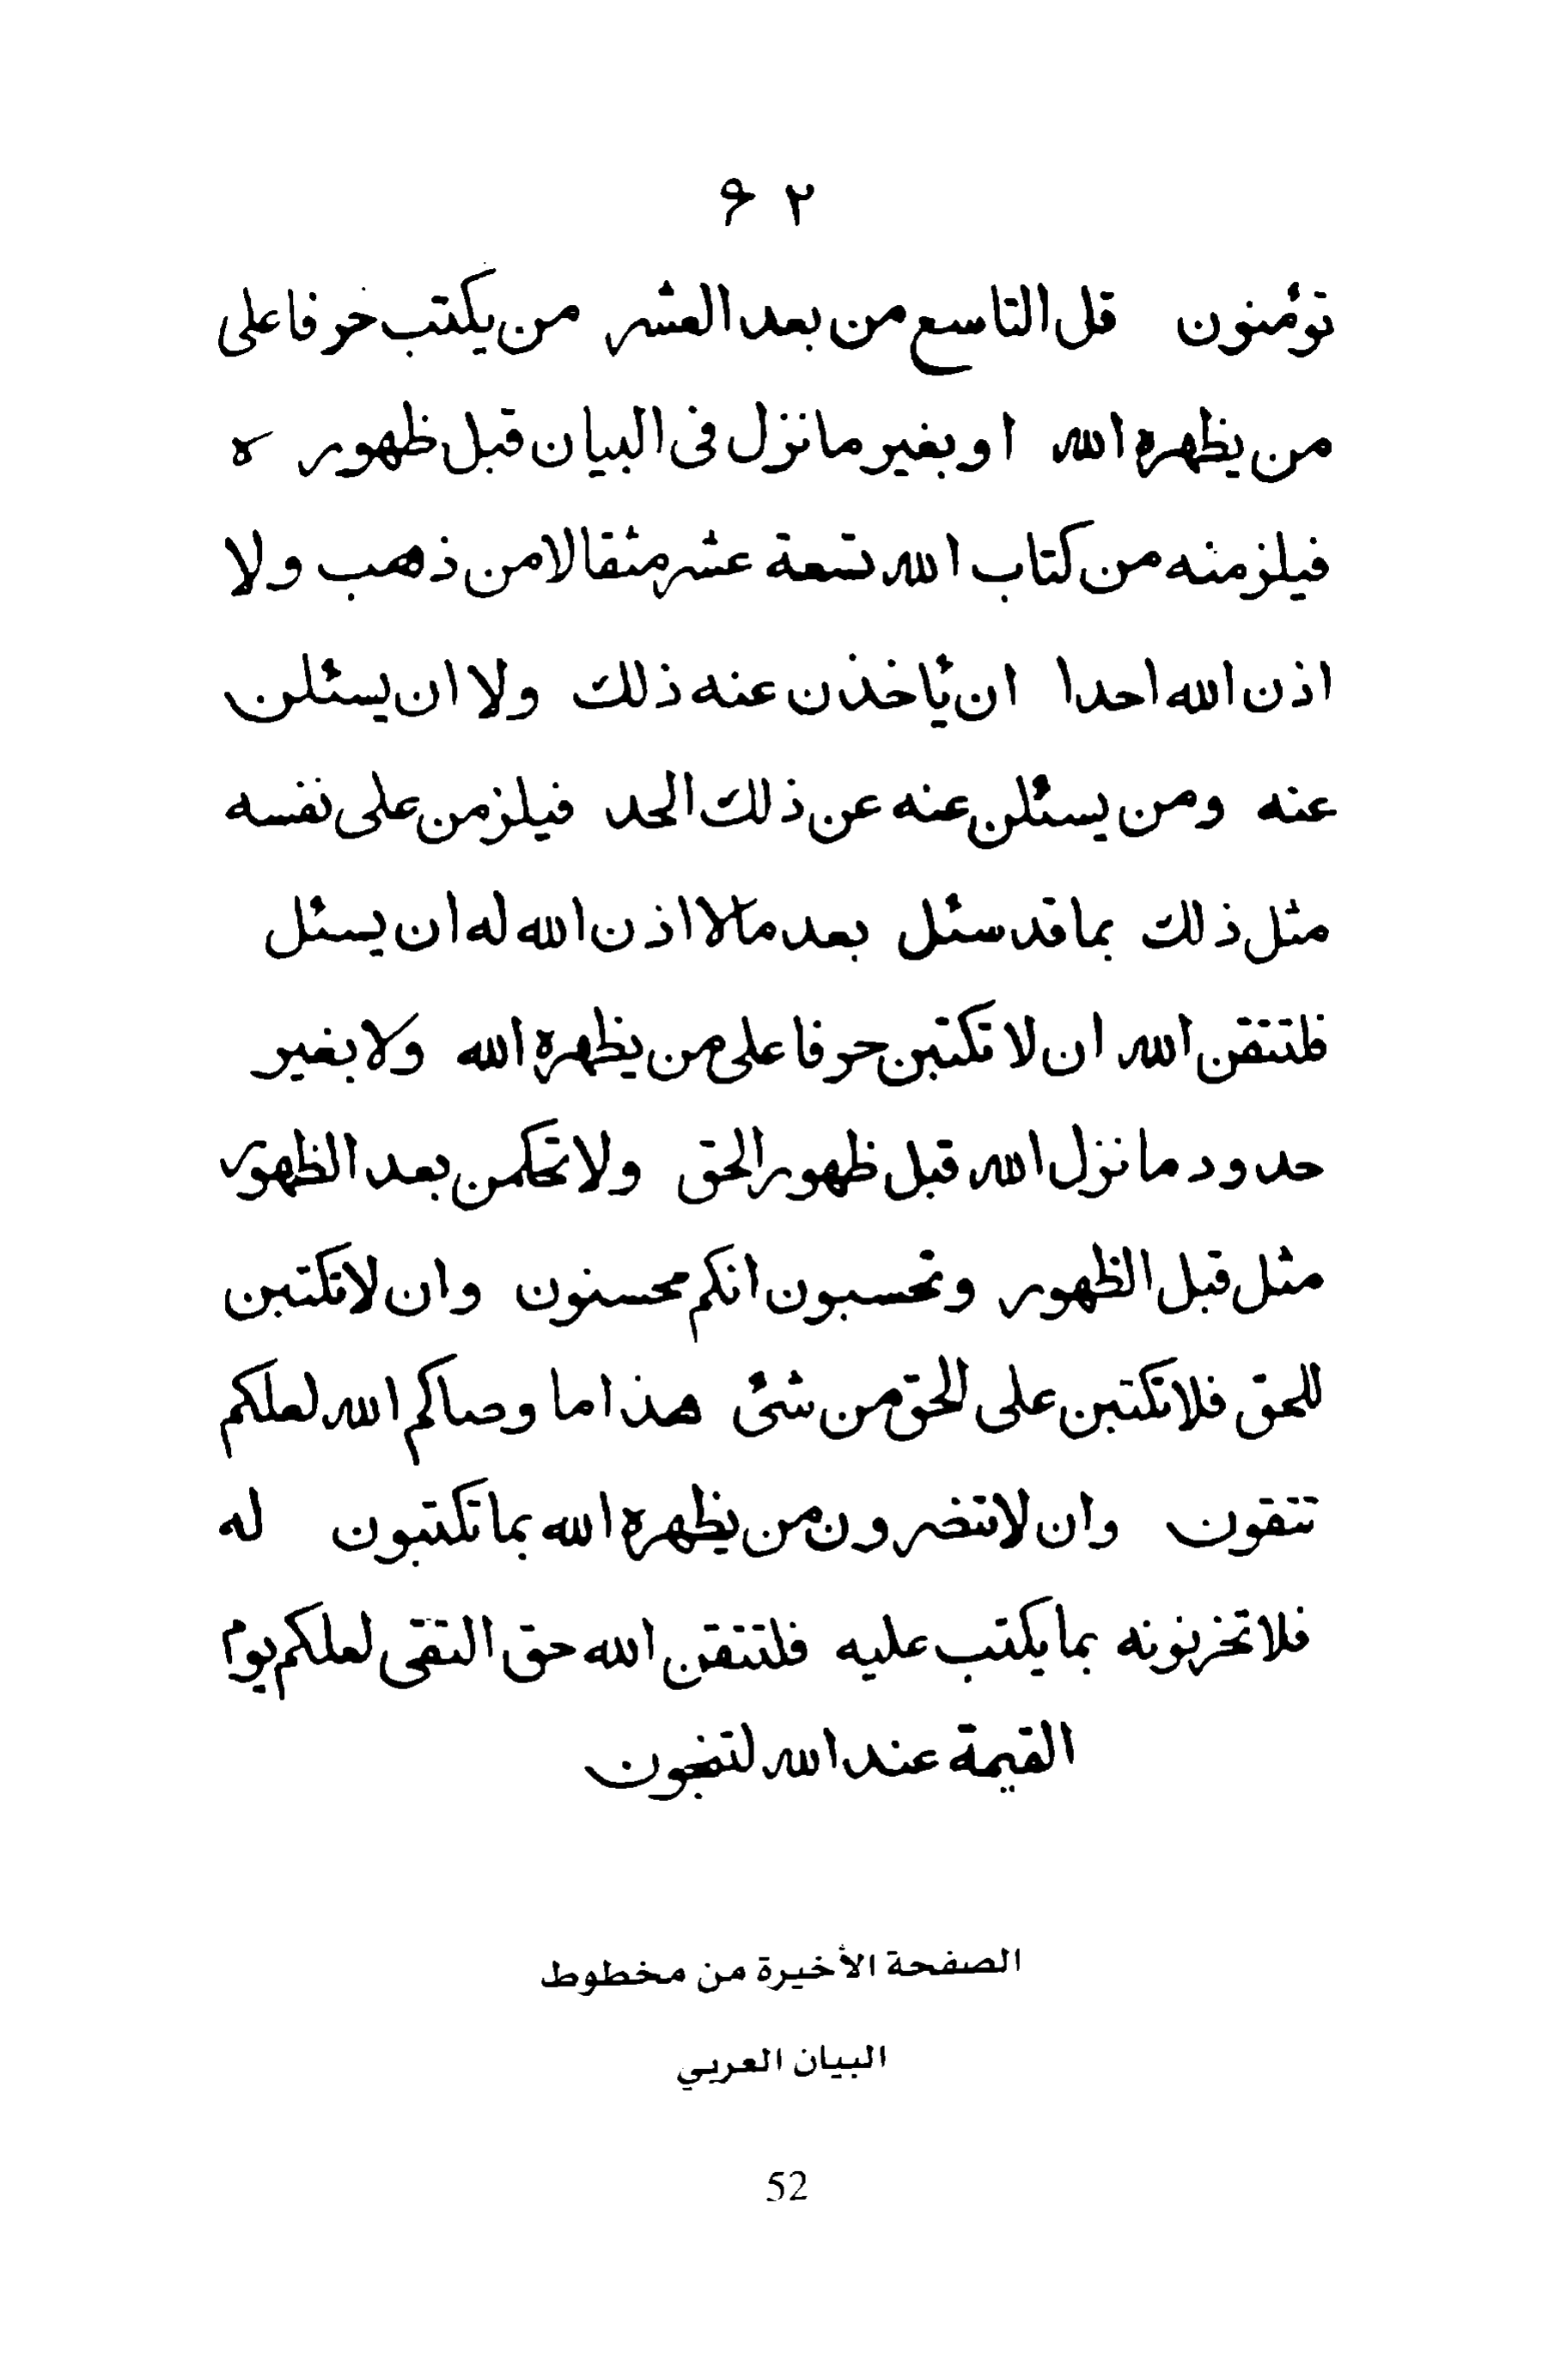 ۶۲
تؤمنون قل التاسع من بعد العشر من يكتب حرفا على
من يظهره الله او بغير ما نزل فى البيان قبل ظهوره
فيلزمنه من كتاب الله تسعة عشر مثقالا من ذهب ولا
اذن الله احدا ان ئاخذن عنه ذلك ولا ان يسئلن
عنه ومن يسئلن عنه عن ذلك الحد فيلزمن على نفسه
مثل ذلك بما قد سئل بعد مالا اذن الله له ان يسئل
فلتتقن الله ان لا تكتبن حرفا على من يظهره الله ولا بغير
حدود ما نزل الله قبل ظهور الحق ولا تحكمن بعد الظهور
مثل قبل الظهور وتحسبون انكم محسنون وان لا تكتبن
للحق فلا تكتبن على الحق من شئ هذا ما وصاكم الله لعلكم
تتقون وان لا تنضرون من يظهره الله بما تكتبون له
فلا تحزنونه بما يكتب عليه فلتتقن الله حق التقى لعلكم يوم
القيمة عند الله لتنجون
الصفحة الأخيرة من مخطوط
البيان العربي
52